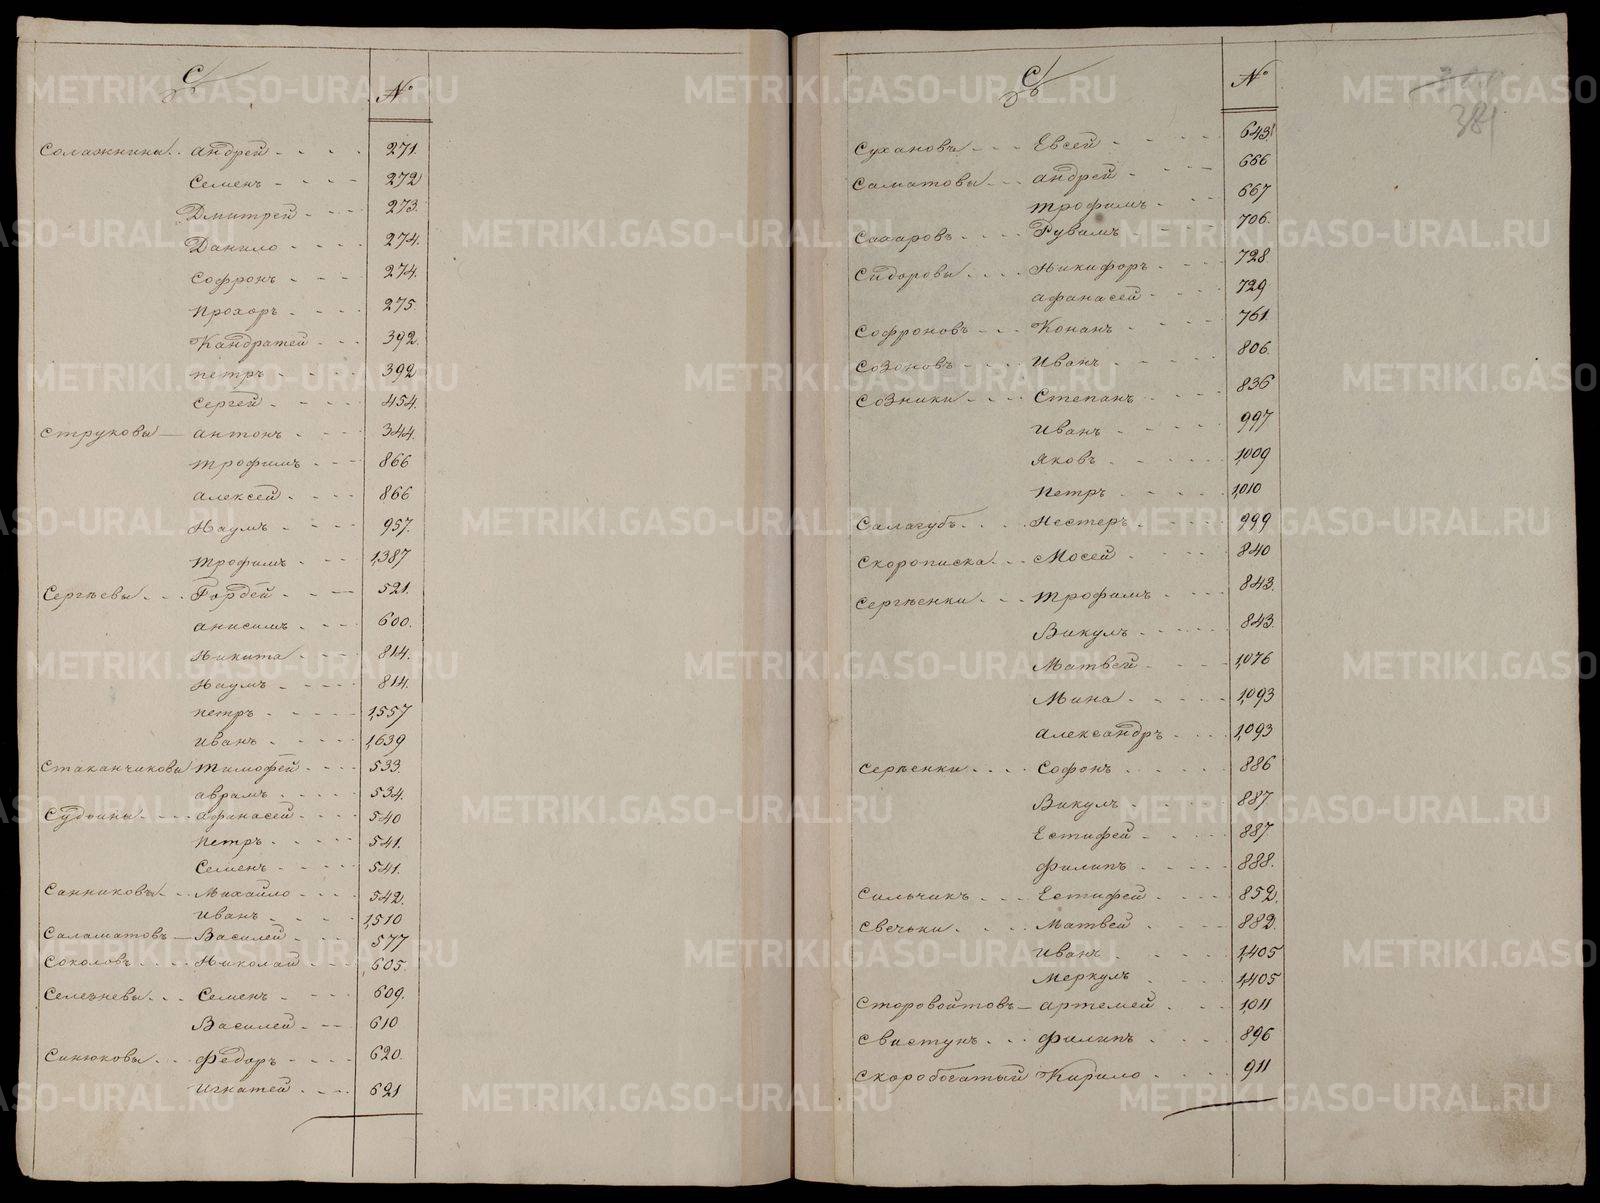 С №
Соложнины. Андрей 271.
Семенъ 272
Дмитрей 273.
Данило 274.
Софронъ 274.
Прохоръ 275.
Кандратей 392.
Петръ 392
Сергей 454.
Струковы Антонъ 344.
Трофимъ 866
Алексей 866
Наумъ 957.
Трофимъ 1,387
Сергѣевы Гордей 521.
Анисимъ 600.
Никита 814.
Наумъ 814.
Петръ 1,557
Иванъ 1,639
Стаканчиковы Тимофей 533.
Аврамъ 534.
Судвины Афанасей 540
Петръ 541.
Семенъ 541.
Санниковы Михайло 542.
Иванъ 1,510
Саламатовъ Василей 577
Соколовъ Николай 605.
Селезневы Семенъ 609.
Василей 610
Синюковы Федоръ 620.
Игнатей 621
С № 381
Сухановъ Евсей 643.
Саматовы Андрей 666
Трофимъ 667
Сахаровъ Рувимъ 706.
Сидоровы Никифоръ 728
Афанасей 729
Софроновъ Конанъ 761.
Созоновъ Иванъ 806.
Созники Степанъ 836
Иванъ 997
Яковъ 1,009
Петръ 1,010
Салагубъ Нестеръ 999
Скорописка Мосей 840
Сергѣенки Трофимъ 843.
Викулъ 843.
Матвей 1,076
Мина 1,093
Александръ 1,093
Серѣенки Софонъ 886
Викулъ 887.
Естифей 887.
Филипъ 888.
Сильчикъ Естифей 852.
Свечьки Матвей 882.
Иванъ 1,405
Меркулъ 1,405
Старовойтовъ Артемей 1,011
Свистунъ Филипъ 896
Скоробогатый Кирило 911
METRIKI.GASO-URAL.RU